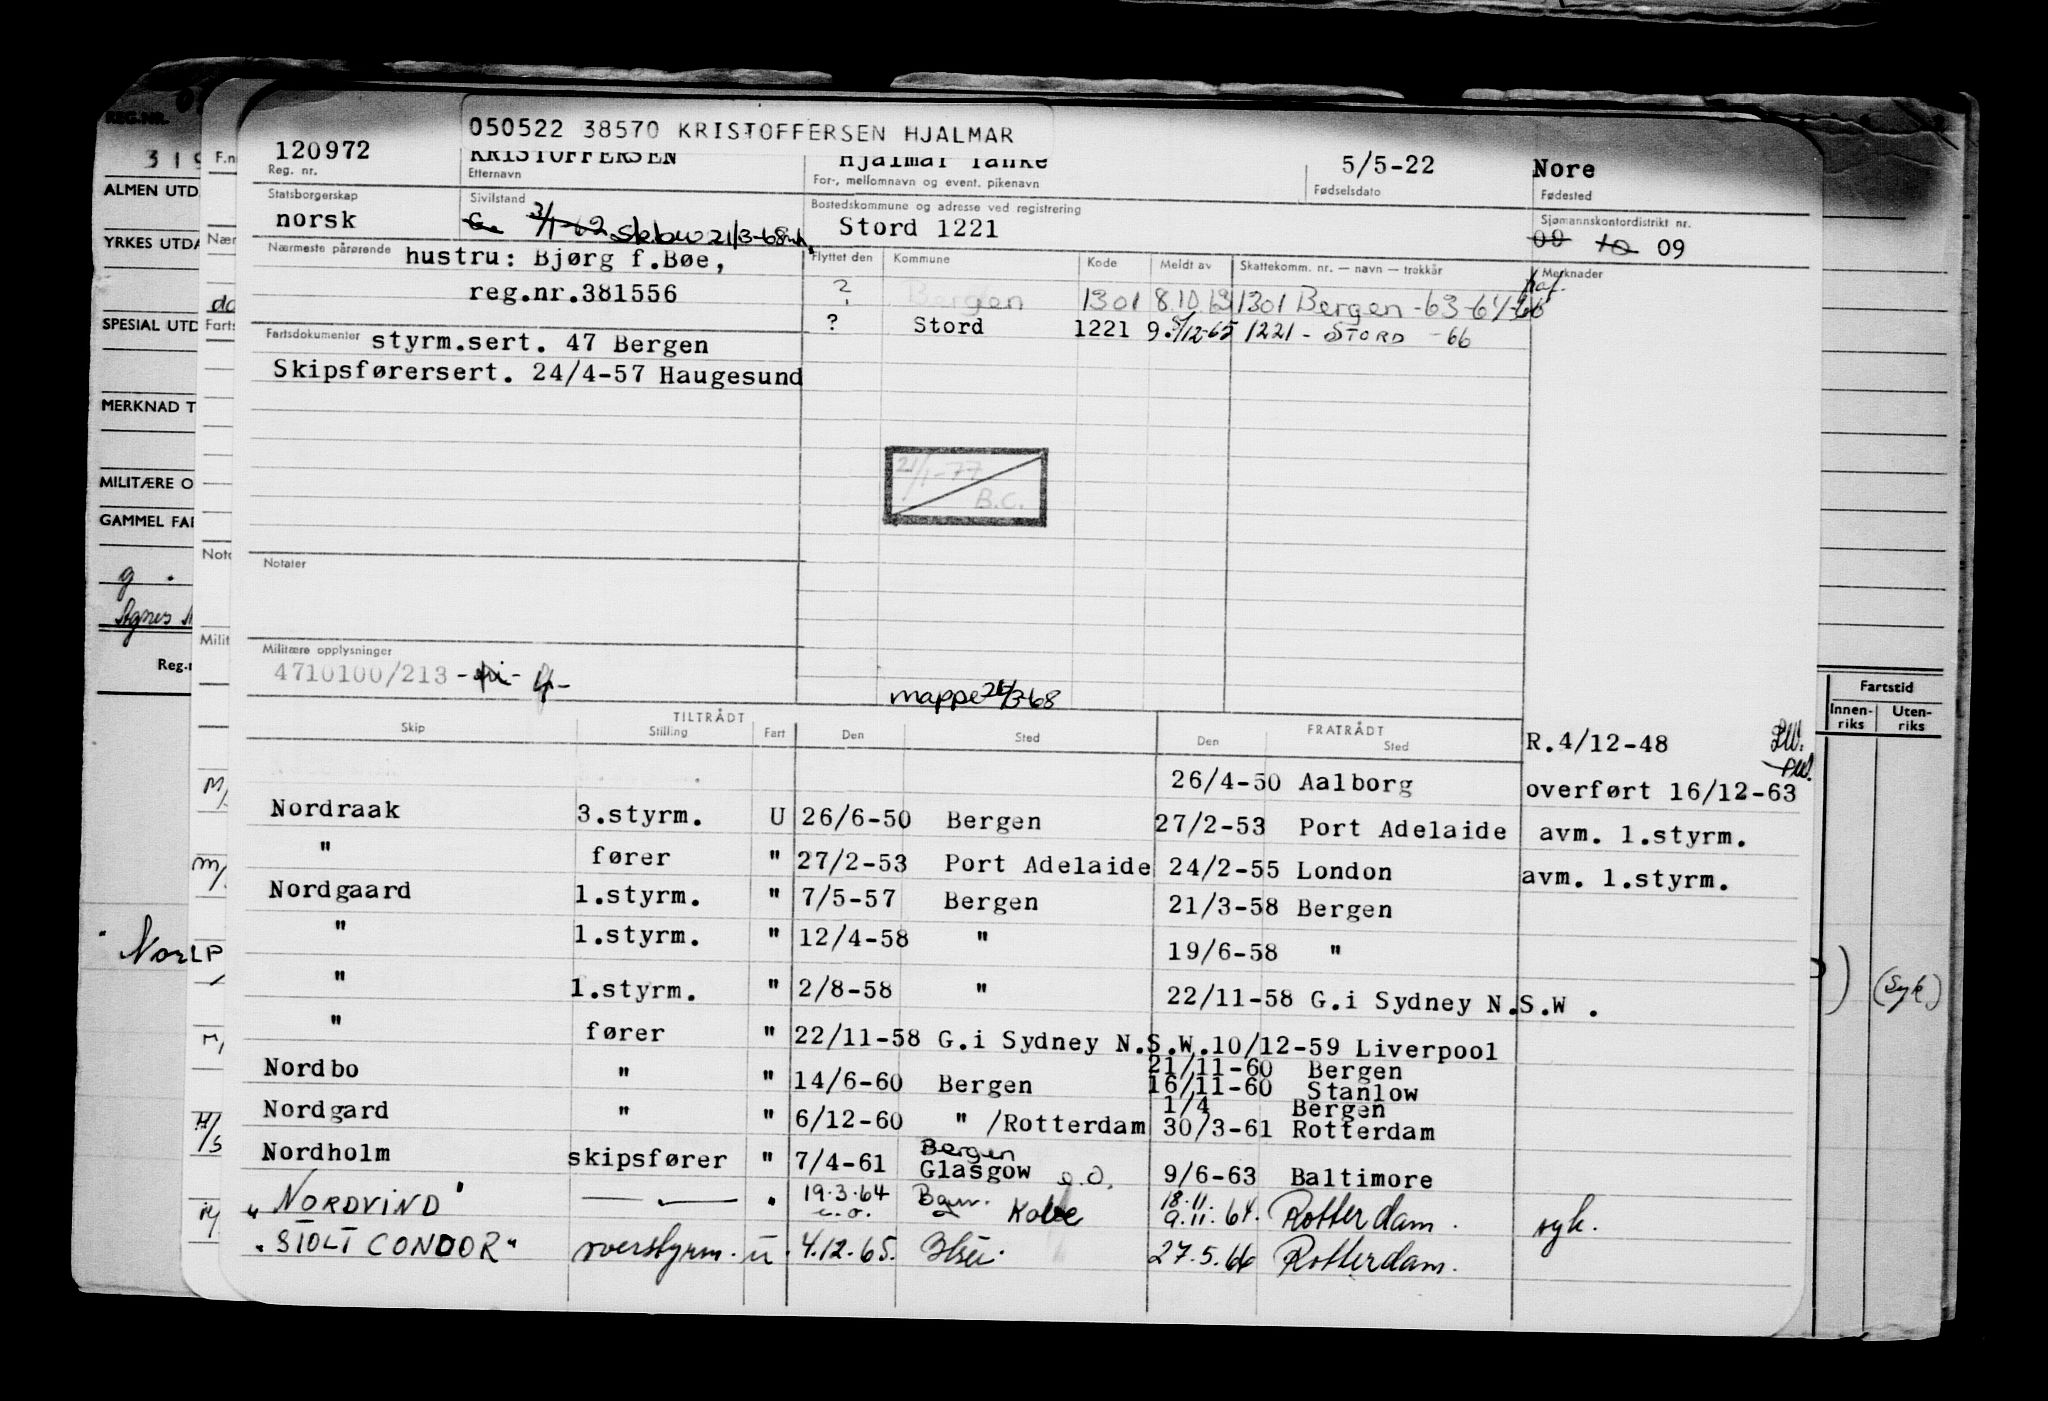 050522 38570 KRISTOFFERSEN HJALMAR
120972 KRISTOFFERSEN Hjalmar Tanke 5/5-22 Nore
Reg. nr. Etternavn For-, mellomnavn og event. pikenavn Fødselsdato Fødested
Statsborgerskap Sivilstand Bostedskommune og adresse ved registrering Sjømannskontordistrikt nr.
norsk G. 3/1-62 21/3-68 Stord 1221 09 10 09
Nærmeste pårørende hustru: Bjørg f.Bøe, Flyttet den Kommune Kode Meldt av Skattekomm. nr. — navn — trekkår Merknader
reg.nr.381556 ? Bergen 1301 8.10.63 1301 Bergen -63-64-65
? Stord 1221 9. /12-65 1221 - STORD -66
Fartsdokumenter styrm.sert. 47 Bergen
Skipsførersert. 24/4-57 Haugesund
21/1-77
B.C.
Notater
Militære opplysninger
4710100/213
mappe 21/3-68
TILTRÅDT FRATRÅDT
Skip Stilling Fart Den Sted Den Sted R.4/12-48
26/4-50 Aalborg overført 16/12-63
Nordraak 3.styrm. U 26/6-50 Bergen 27/2-53 Port Adelaide avm. 1.styrm.
" fører " 27/2-53 Port Adelaide 24/2-55 London avm. 1.styrm.
Nordgaard 1.styrm. " 7/5-57 Bergen 21/3-58 Bergen
" 1.styrm. " 12/4-58 " 19/6-58 "
" 1.styrm. " 2/8-58 " 22/11-58 G.i Sydney N.S.W .
" fører " 22/11-58 G.i Sydney N.S.W. 10/12-59 Liverpool
21/11-60 Bergen
Nordbo " " 14/6-60 Bergen 16/11-60 Stanlow
1/4 Bergen
Nordgard " " 6/12-60 " /Rotterdam 30/3-61 Rotterdam
Bergen
Nordholm skipsfører " 7/4-61 Glasgow e.o. 9/6-63 Baltimore
19.3.64 18.11.
"NORDVIND" — " — " e.o. Bgn. Kobe 9.11.64. Rotterdam. syk.
"STOLT CONDOR" overstyrm. u. 4.12.65. 27.5.66 Rotterdam.
REG.NR.
319
ALMEN UTD
YRKES UTDA
SPESIAL UTD
MERKNAD T
MILITÆRE O
GAMMEL FAR
Agnes
Reg.n
F.n
Nær
Farts
Nota
Milit
Nor LP
Fartstid
Innen-riks Uten-riks
(syk)